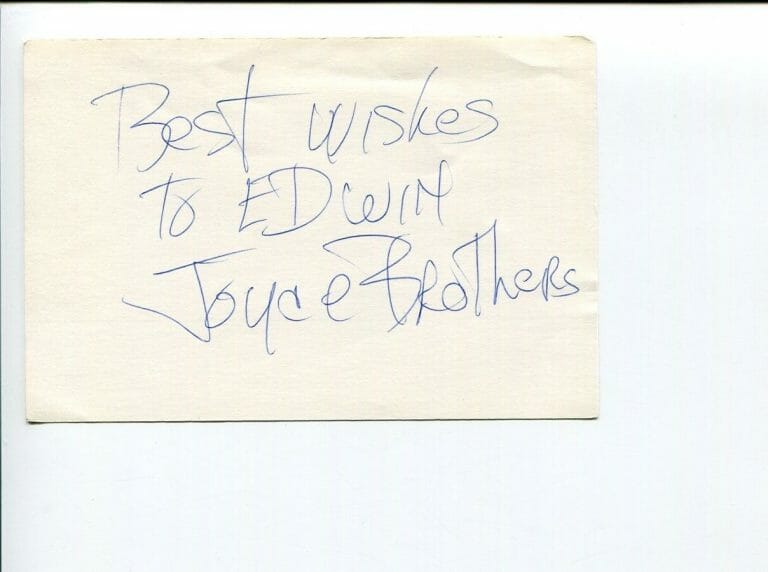 Best wishes
To EDWIN
Joyce Brothers